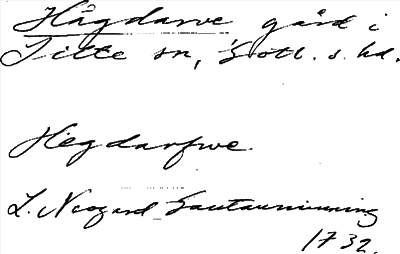 Hägdarve gård i
Fide sn, Gotl. s. hd.
Hegdarfwe
L. Neogard Gautauminning
1732.